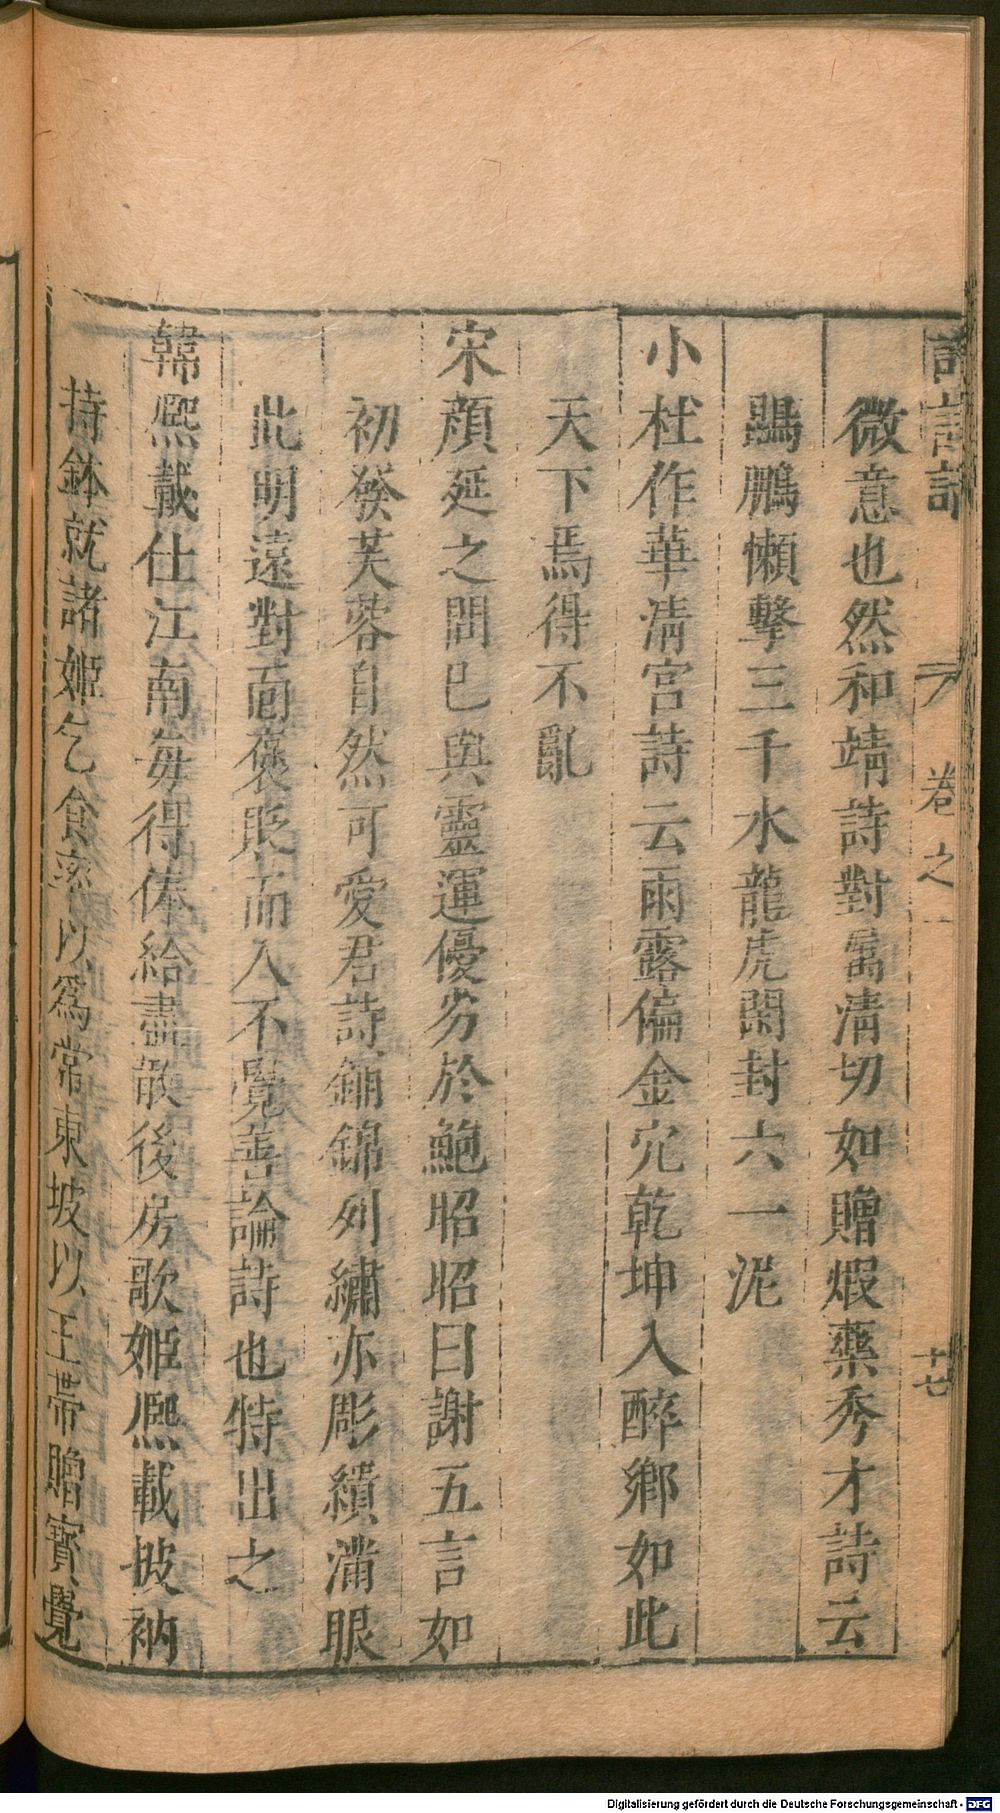 卷之一
十七
微意也然和靖詩對屬清切如贈煆藥秀才詩云
鵾鵬懶擊三千水龍虎閑封六一泥
小杜作華清宮詩云雨露偏金穴乾坤入醉鄉如此
天下焉得不亂
宋顔延之問巳與靈運優劣於鮑昭昭曰謝五言如
初發芙蓉自然可愛君詩鋪錦列繡亦彫繢滿眼
此明遠對面褒貶而人不覺善論詩也特出之
韓熙載仕江南每得俸給盡散後房歌姬熙載披衲
持鉢就諸姬乞食率以爲常東坡以玉帶贈寶覺
Digitalisierung gefördert durch die Deutsche Forschungsgemeinschaft - DFG